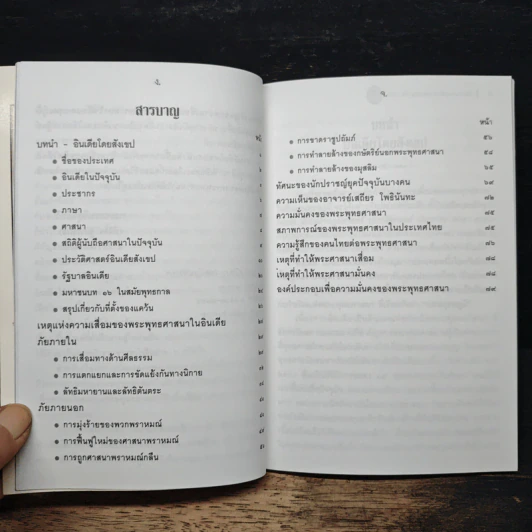 สารบาญ
บทนำ - อินเดียโดยสังเขป
● ชื่อของประเทศ
● อินเดียในปัจจุบัน
● ประชากร
● ภาษา
● ศาสนา
● สถิติผู้นับถือศาสนาในปัจจุบัน
● ประวัติศาสตร์อินเดียสังเขป
● รัฐบาลอินเดีย
● มหาชนบท ๑๖ ในสมัยพุทธกาล
● สรุปเกี่ยวกับที่ตั้งของแคว้น
เหตุแห่งความเสื่อมของพระพุทธศาสนาในอินเดีย
ภัยภายใน
● การเสื่อมทางด้านศีลธรรม
● การแตกแยกและการขัดแย้งกันทางนิกาย
● ลัทธิมหายานและลัทธิตันตระ
ภัยภายนอก
● การมุ่งร้ายของพวกพราหมณ์
● การฟื้นฟูใหม่ของศาสนาพราหมณ์
● การถูกศาสนาพราหมณ์กลืน
หน้า
● การขาดราชูปถัมภ์ ๕๖
● การทำลายล้างของกษัตริย์นอกพระพุทธศาสนา ๕๘
● การทำลายล้างของมุสลิม ๖๕
ทัศนะของนักปราชญ์ยุคปัจจุบันบางคน ๖๙
ความเห็นของอาจารย์เสถียร โพธินันทะ ๗๒
ความมั่นคงของพระพุทธศาสนา ๗๕
สภาพการณ์ของพระพุทธศาสนาในประเทศไทย ๗๕
ความรู้สึกของคนไทยต่อพระพุทธศาสนา ๗๖
เหตุที่ทำให้พระศาสนาเสื่อม ๗๘
เหตุที่ทำให้พระศาสนามั่นคง ๗๘
องค์ประกอบเพื่อความมั่นคงของพระพุทธศาสนา ๗๙